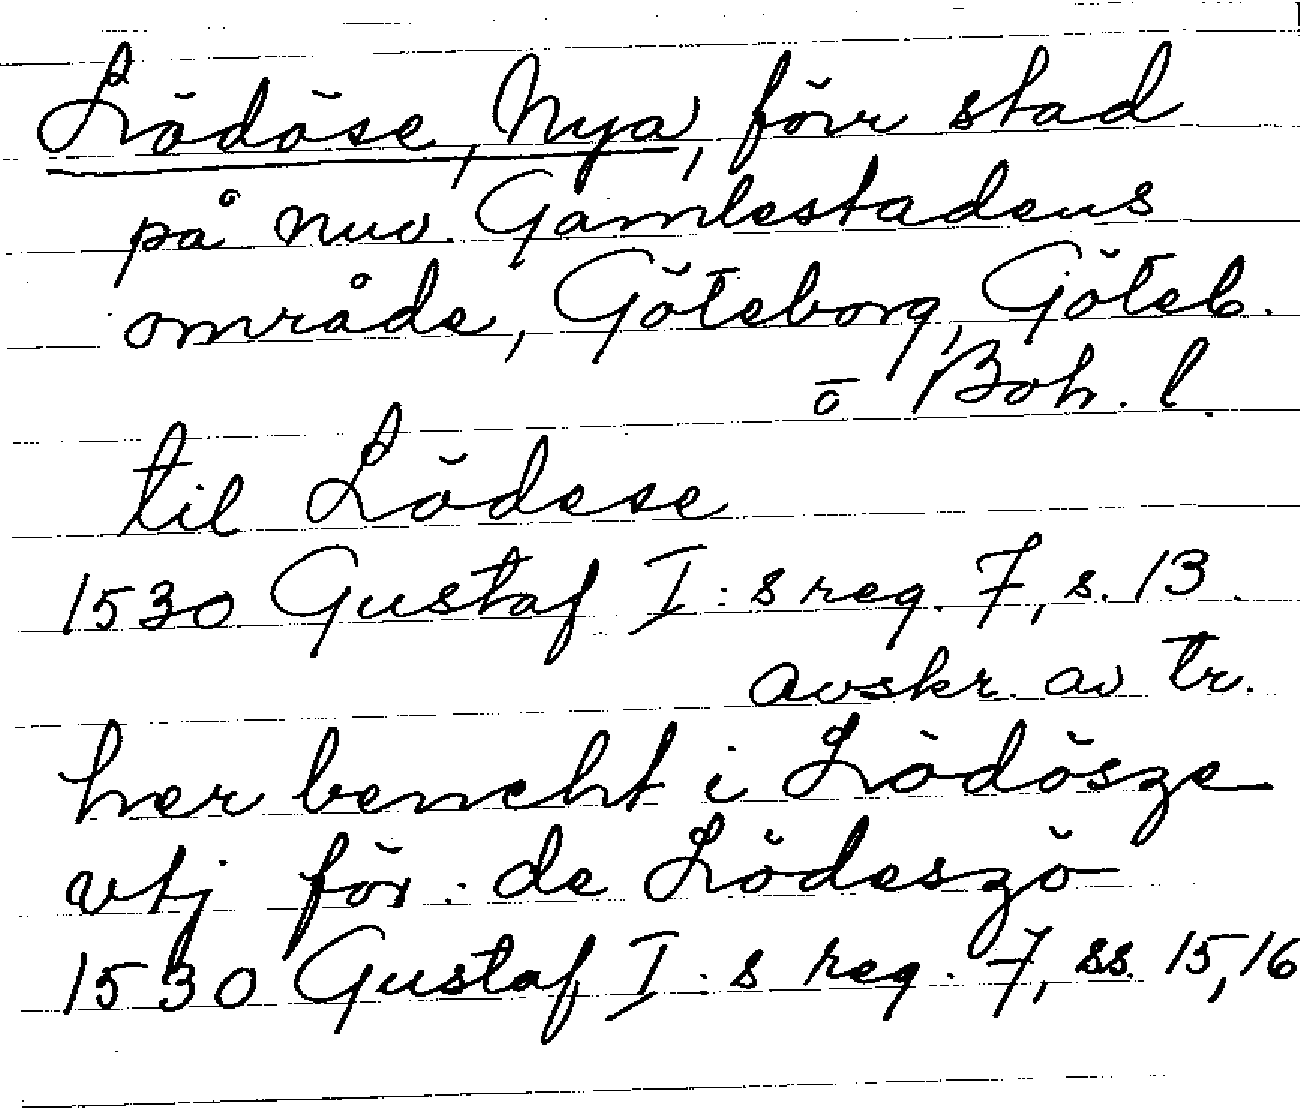 Lödöse, Nya, förr stad
på nuv. Gamlestadens
område, Göteborg, Göteb.
o Boh. l.
til Lödese
1530 Gustaf I:s reg. 7, s. 13.
avskr. av tr.
her bencht i Lödösze
vtj för. de Lödeszö
1530 Gustaf I:s reg. 7, ss. 15, 16